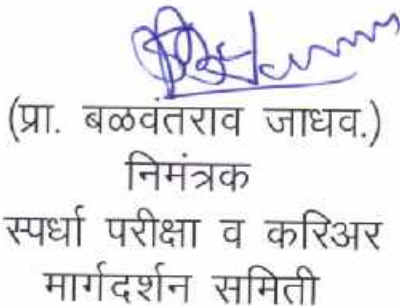 (प्रा. बळवंतराव जाधव.)
निमंत्रक
स्पर्धा परीक्षा व करिअर
मार्गदर्शन समिती